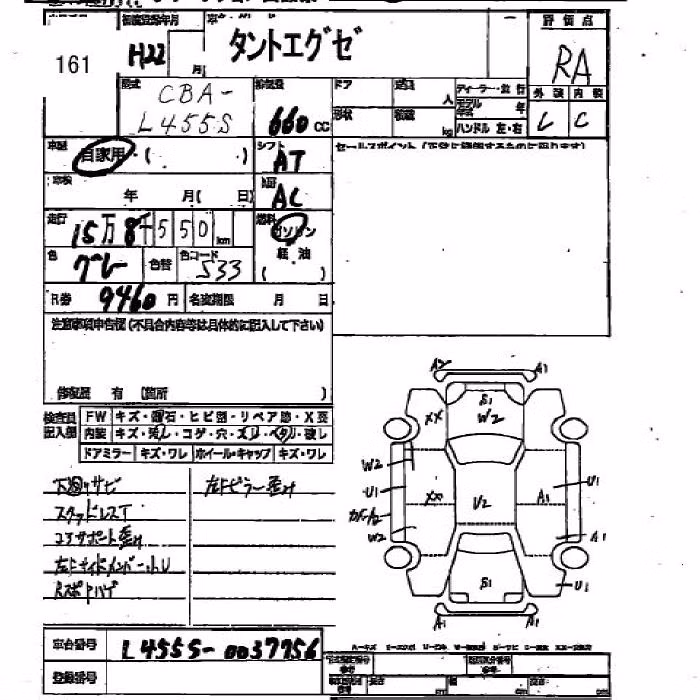 161
初度登録年月
H22 月
タントエグゼ
評価点
RA
型式
CBA-
L455S
排気量
660 cc
ドア
形状
定員 人
積載 kg
ディーラー・並行
モデル年式 年
ハンドル 左・右
外装 内装
C
車歴
自家用・( )
シフト
AT
セールスポイント(正常に機能するものに限ります)
車検
年 月( 日)
AC
走行
15万8千550 km
燃料
ガソリン
軽油
( )
色
グレー
色替
色コード
S33
R券
9460 円
名変期限 月 日
注意事項申告欄(不具合内容等は具体的に記入して下さい)
修復歴 有 (箇所 )
検査員記入欄
FW キズ・飛石・ヒビ割・リペア跡・X要
内装 キズ・汚レ・コゲ・穴・スレ・ヘタリ・破レ
ドアミラー キズ・ワレ ホイール・キャップ キズ・ワレ
下廻りサビ
左Fピラー歪み
スタッドレスT
コアサポート歪み
A2 A1
S1
XX W2
W2
U1
XX U2 A1 U1
A2
W2 A1
S1 U1
A1 A1
車台番号
L455S-0037756
登録番号